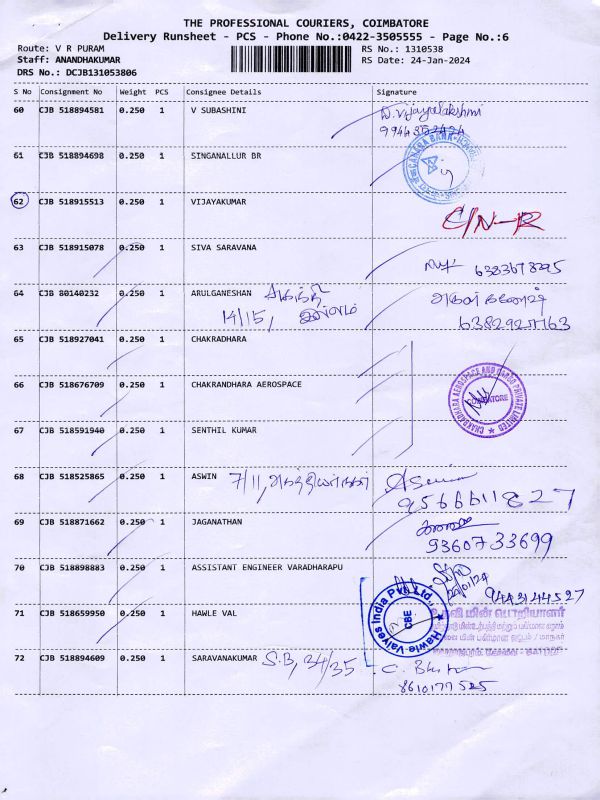 THE PROFESSIONAL COURIERS, COIMBATORE
Delivery Runsheet - PCS - Phone No.:0422-3505555 - Page No.:6
Route: V R PURAM
Staff: ANANDHAKUMAR
DRS No.: DCJB131053806
RS No.: 1310538
RS Date: 24-Jan-2024
S No Consignment No Weight PCS Consignee Details Signature
60 CJB 518894581 0.250 1 V SUBASHINI D. Vijayalakshmi
9944352424
61 CJB 518894698 0.250 1 SINGANALLUR BR
CANARA BANK
62 CJB 518915513 0.250 1 VIJAYAKUMAR C/N-R
63 CJB 518915078 0.250 1 SIVA SARAVANA
64 CJB 80140232 0.250 1 ARULGANESHAN
14/15, இல்லம்
65 CJB 518927041 0.250 1 CHAKRADHARA
66 CJB 518676709 0.250 1 CHAKRANDHARA AEROSPACE
CHAKRADHARA AEROSPACE AND CARGO PRIVATE LIMITED
COIMBATORE
67 CJB 518591940 0.250 1 SENTHIL KUMAR
68 CJB 518525865 0.250 1 ASWIN 7/11, அகத்தியர்நகர்
9566611827
69 CJB 518871662 0.250 1 JAGANATHAN
9360733699
70 CJB 518898883 0.250 1 ASSISTANT ENGINEER VARADHARAPU
9443144527
71 CJB 518659950 0.250 1 HAWLE VAL
Hawle Valves India Pvt. Ltd.,
CBE
72 CJB 518894609 0.250 1 SARAVANAKUMAR S.B, 34/35
8610177525